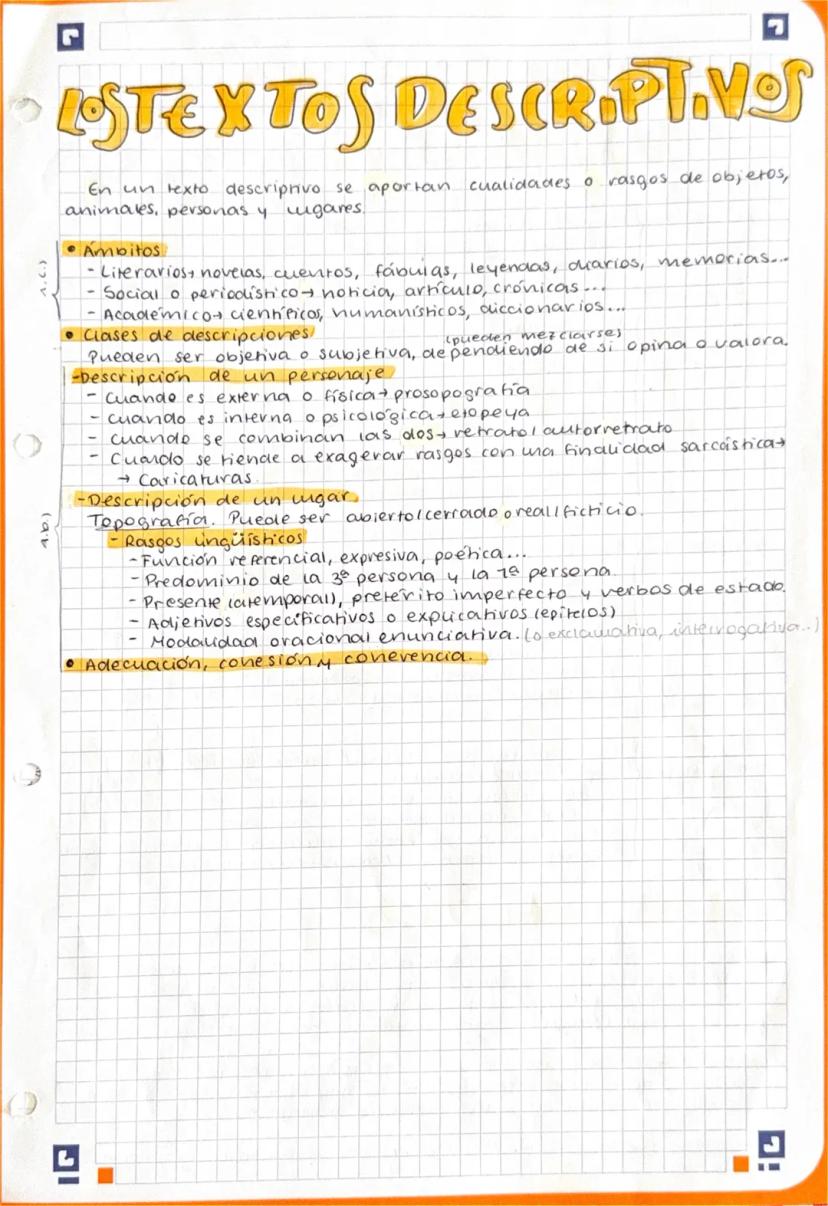 LOS TEXTOS DESCRIPTIVOS
En un texto descriptivo se aportan cualidades o rasgos de objetos,
animales, personas y lugares.
• Ámbitos
- Literarios→ novelas, cuentos, fábulas, leyendas, diarios, memorias...
- Social o periodístico → noticia, artículo, crónicas...
- Académico→ científicos, humanísticos, diccionarios...
1.c.)
• Clases de descripciones
(pueden mezclarse)
Pueden ser objetiva o subjetiva, dependiendo de si opina o valora.
-Descripción de un personaje
- Cuando es externa o física→ prosopografía
- Cuando es interna o psicológica→ etopeya
- Cuando se combinan las dos→ retrato/autorretrato
- Cuando se tiende a exagerar rasgos con una finalidad sarcástica→
→ Caricaturas
-Descripción de un lugar
Topografía. Puede ser abierto/cerrado o real/ficticio.
1.b.)
- Rasgos lingüísticos
- Función referencial, expresiva, poética...
- Predominio de la 3ª persona y la 1ª persona
- Presente (atemporal), pretérito imperfecto y verbos de estado.
- Adjetivos especificativos o explicativos (epítetos)
- Modalidad oracional enunciativa. (o exclamativa, interrogativa..)
• Adecuación, cohesión y coherencia.